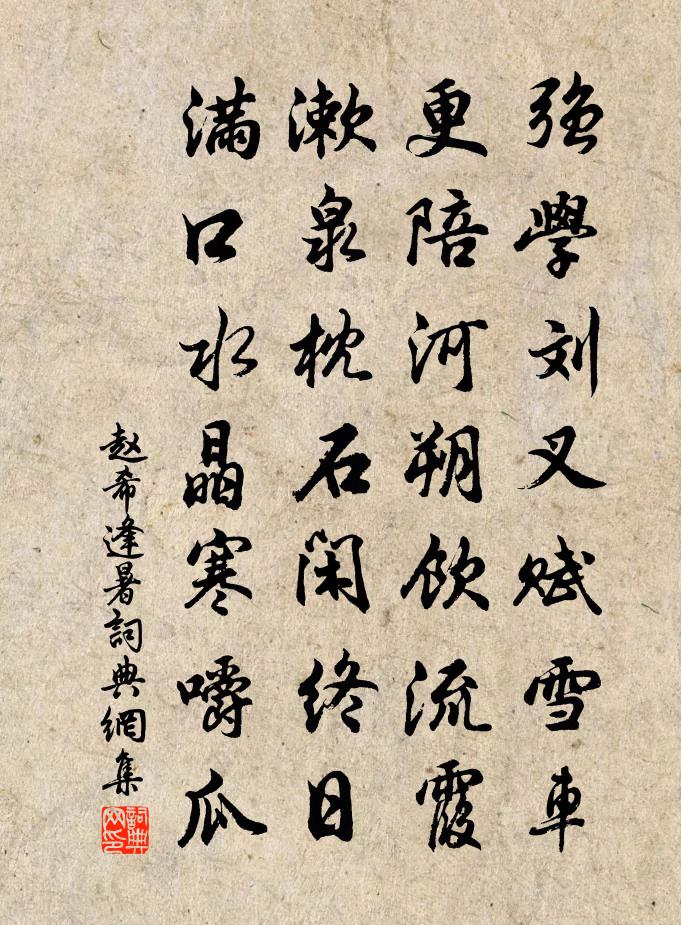 强学刘叉赋雪车
更陪河朔饮流霞
漱泉枕石闲终日
满口水晶寒嚼瓜
赵希逢暑詞典網集
詞典网印